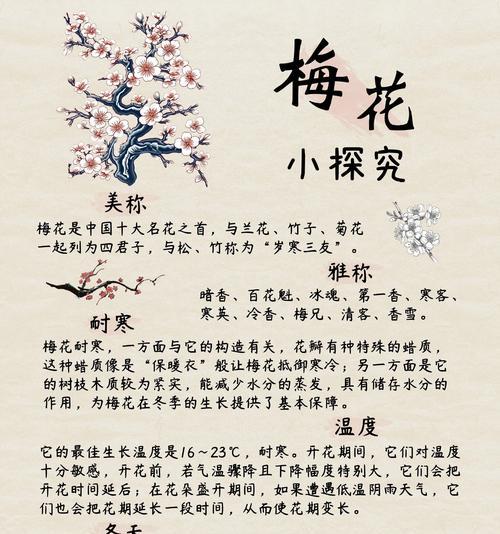 梅花
小探究
美称
梅花是中国十大名花之首，与兰花、竹子、菊花
一起列为四君子，与松、竹称为“岁寒三友”。
雅称
暗香、百花魁、冰魂、第一香、寒客、
寒英、冷香、梅兄、清客、香雪。
耐寒
梅花耐寒，一方面与它的构造有关，花瓣有种特殊的蜡质，
这种蜡质像是“保暖衣”般让梅花抵御寒冷；另一方面是它
的树枝木质较为紧实，能减少水分的蒸发，具有储存水分的
作用，为梅花在冬季的生长提供了基本保障。
温度
它的最佳生长温度是16～23℃，耐寒。开花期间，它们对温度
十分敏感，开花前，若气温骤降且下降幅度特别大，它们会把
开花时间延后；在花朵盛开期间，如果遭遇低温阴雨天气，它
们也会把花期延长一段时间，从而使花期变长。